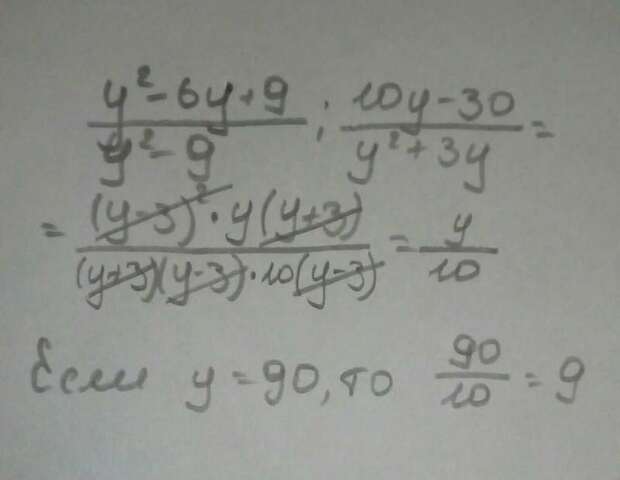 (y² - 6y + 9)/(y² - 9) : (10y - 30)/(y² + 3y) =
= ((y-3)² · y(y+3))/((y+3)(y-3) · 10(y-3)) = y/10
Если y = 90, то 90/10 = 9